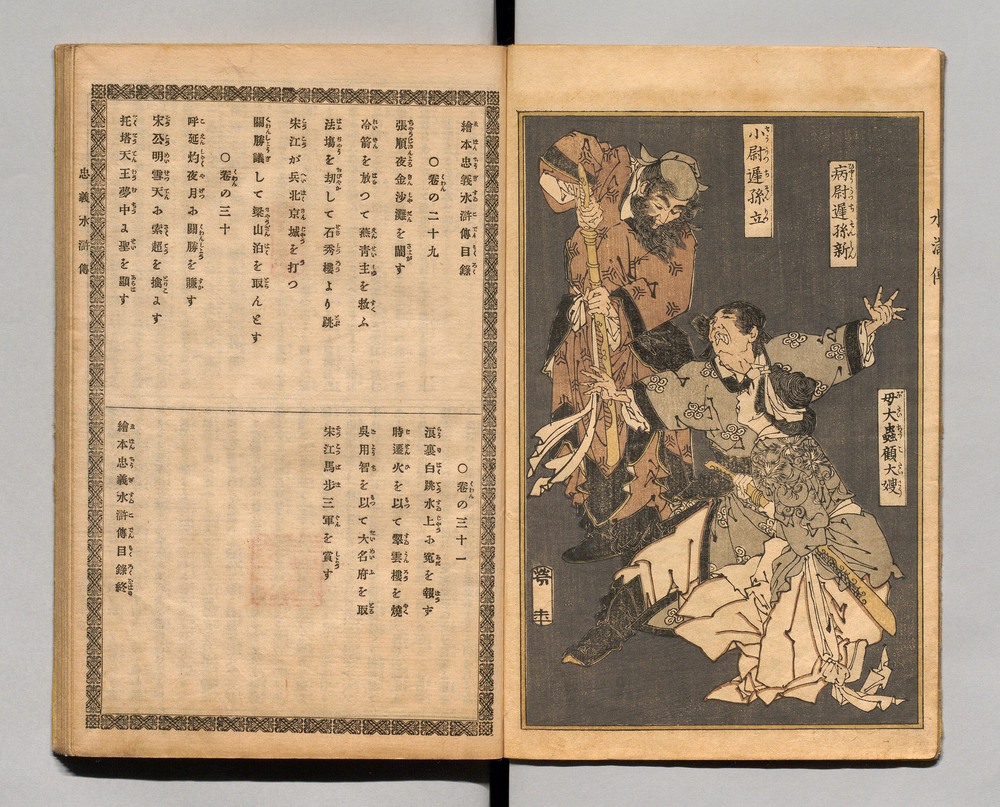 水滸傳
病尉遲孫新
小尉遲孫立
母大蟲顧大嫂
繪本忠義水滸傳目錄
○卷の二十九
張順夜金沙灘を鬧す
冷箭を放つて燕青主を救ふ
法塲を劫して石秀樓より跳
宋江が兵北京城を打つ
關勝議して梁山泊を取んとす
○卷の三十
呼延灼夜月に關勝を賺す
宋公明雪天に索超を擒にす
托塔天王夢中に聖を顯す
○卷の三十一
浪裏白跳水上に寃を報す
時遷火を以て翠雲樓を燒
吳用智を以て大名府を取
宋江馬步三軍を賞す
繪本忠義水滸傳目錄終
忠義水滸傳